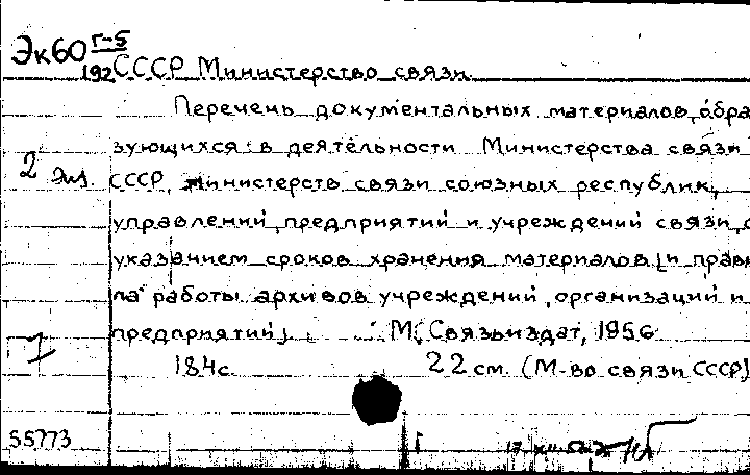 Эк60 Г-5
192 СССР Министерство связи.
Перечень документальных материалов, обра
зующихся в деятельности Министерства связи
2 экз. СССР, министерств связи союзных республик,
управлений, предприятий и учреждений связи, с
указанием сроков хранения материалов [и прави
ла работы архивов учреждений, организаций и
предприятий]. М., Связьиздат, 1956
1
184 с. 22 см. (М-во связи СССР)
55773